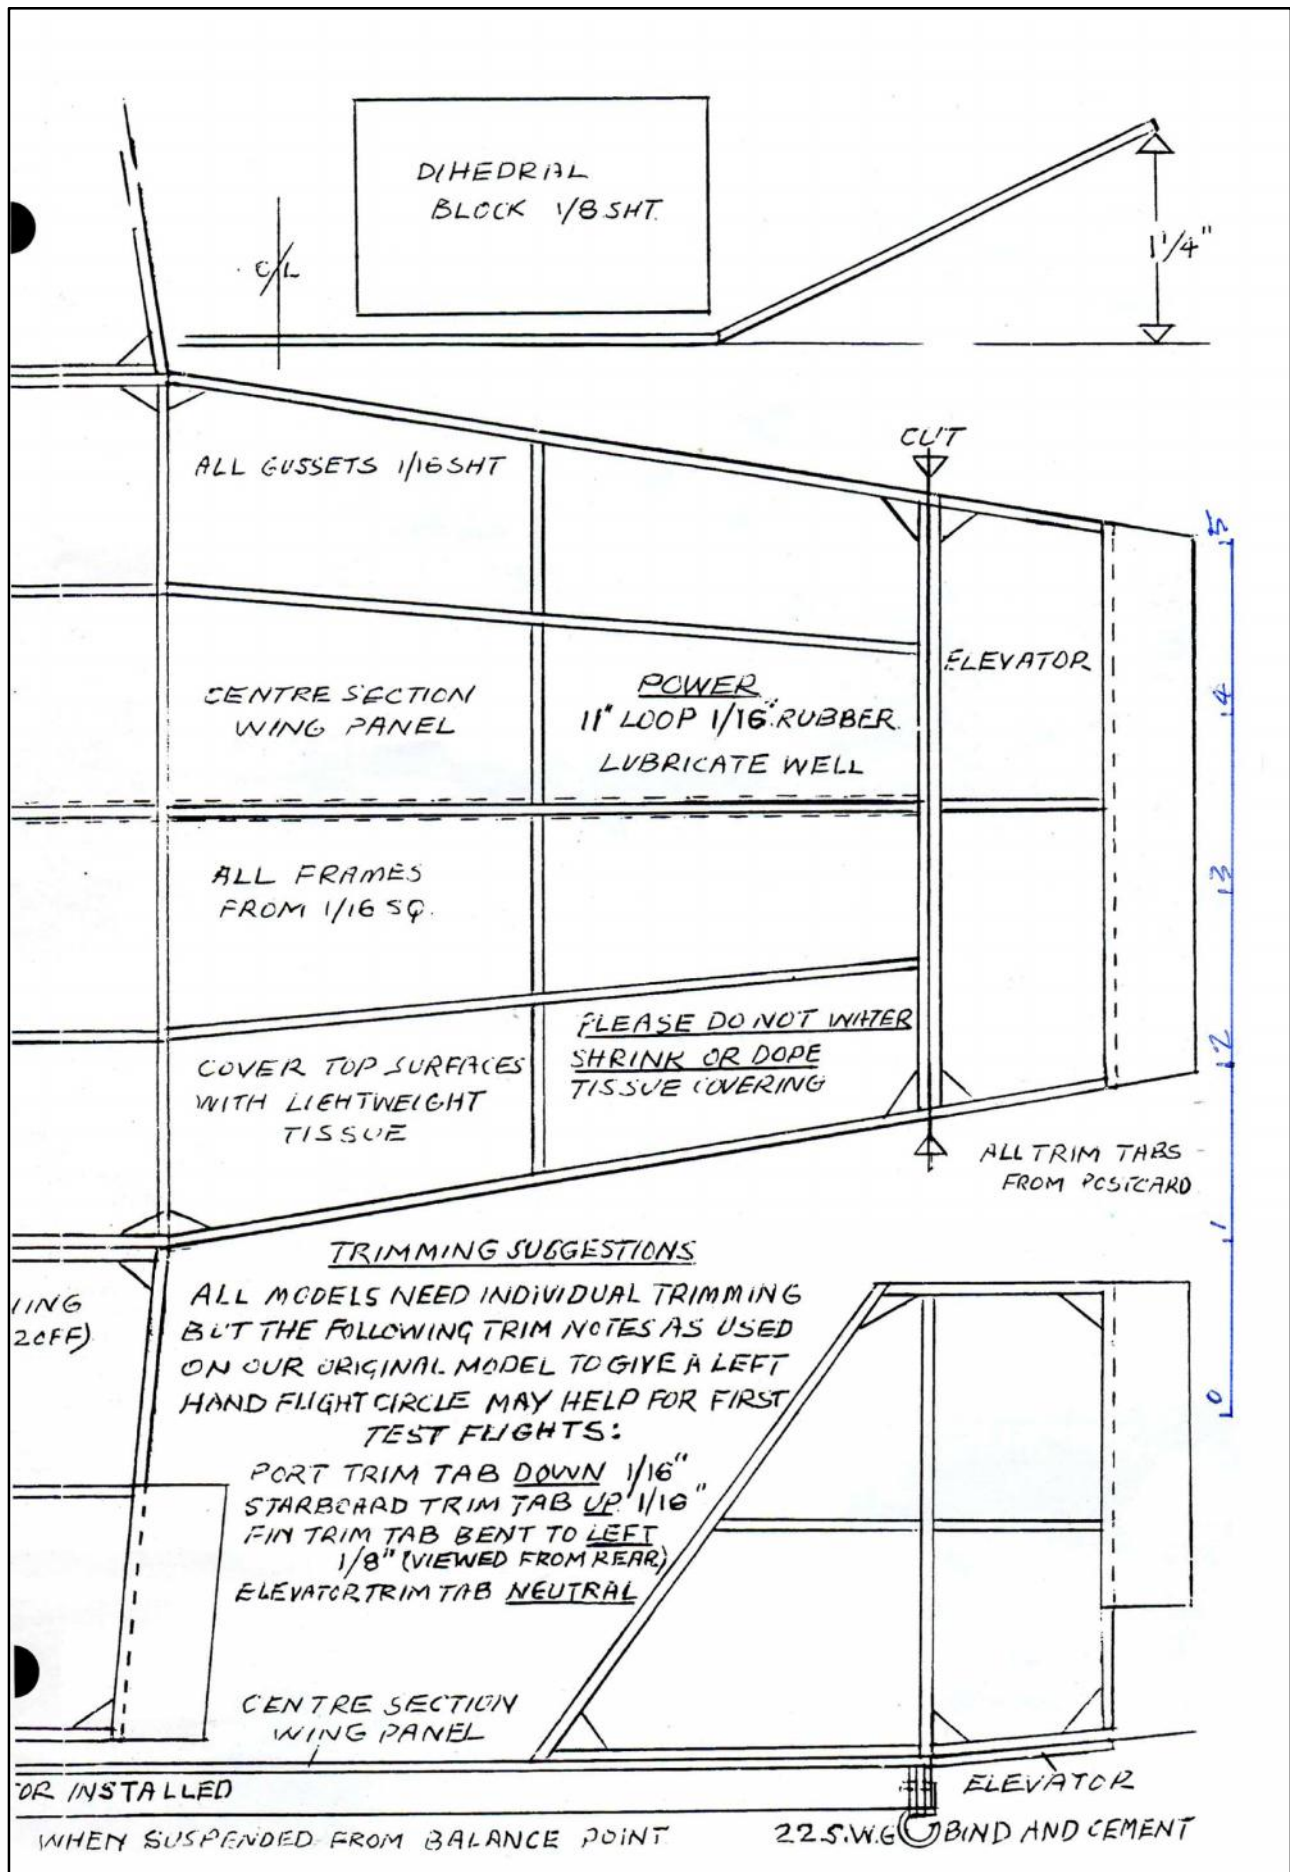 DIHEDRIAL
BLOCK 1/8 SHT.
C/L
1 1/4"
CUT
ALL GUSSETS 1/16 SHT
ELEVATOR
CENTRE SECTION
WING PANEL
POWER
11" LOOP 1/16" RUBBER
LUBRICATE WELL
ALL FRAMES
FROM 1/16 SQ.
COVER TOP SURFACES
WITH LIGHTWEIGHT
TISSUE
PLEASE DO NOT WATER
SHRINK OR DOPE
TISSUE COVERING
ALL TRIM TABS
FROM POSTCARD
5
4
3
2
1
0
TRIMMING SUGGESTIONS
ALL MODELS NEED INDIVIDUAL TRIMMING
BUT THE FOLLOWING TRIM NOTES AS USED
ON OUR ORIGINAL MODEL TO GIVE A LEFT
HAND FLIGHT CIRCLE MAY HELP FOR FIRST
TEST FLIGHTS:
PORT TRIM TAB DOWN 1/16"
STARBOARD TRIM TAB UP 1/16"
FIN TRIM TAB BENT TO LEFT
1/8" (VIEWED FROM REAR)
ELEVATOR TRIM TAB NEUTRAL
ING
2 OFF)
CENTRE SECTION
WING PANEL
OR INSTALLED
ELEVATOR
WHEN SUSPENDED FROM BALANCE POINT
22 S.W.G BIND AND CEMENT